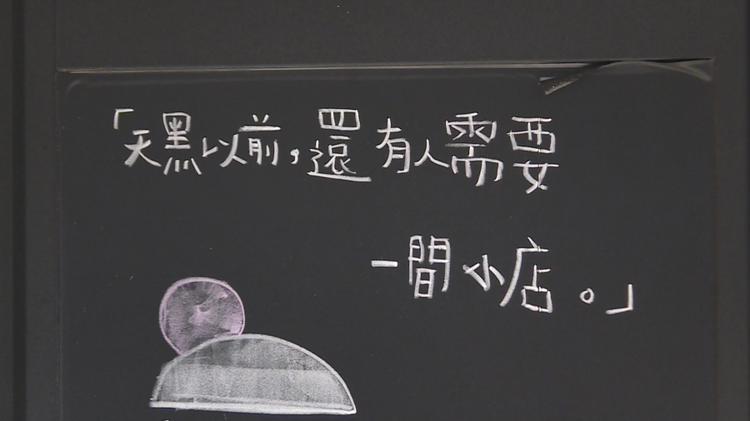 「天黑以前,還有人需要
一間小店。」